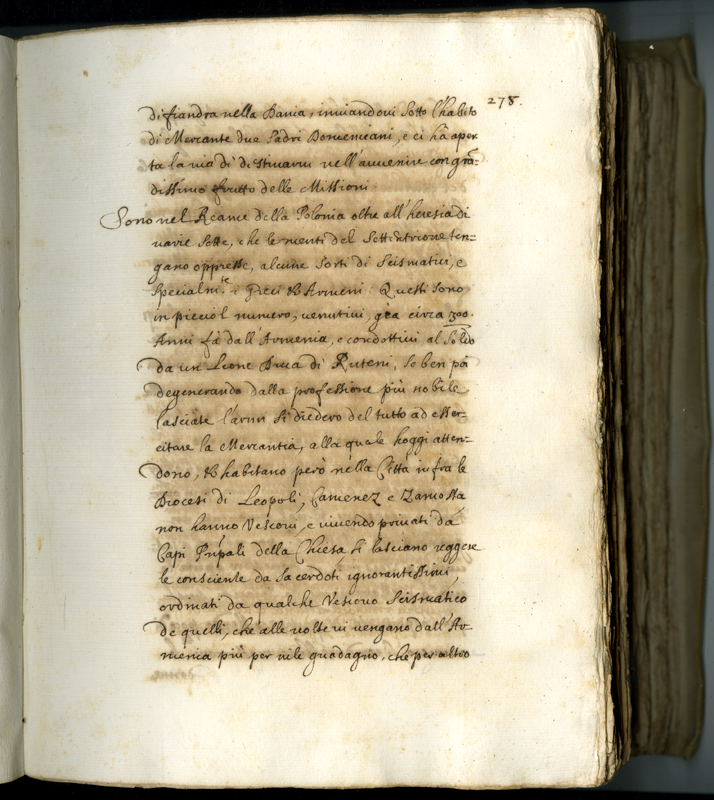 278.
di fiandra nella Dania, inviandovi sotto l'habito
di Mercante due Padri Domenicani, e ci hà aper
ta la via di distinarvi nell'avvenire con grā=
dissimo frutto delle Missioni
Sono nel Reame della Polonia oltre all'heresia di
varie sette, che le menti del Settentrione ten=
gano oppresse, alcune sorti di Scismatici, e
specialm.te Greci & Armeni. Questi sono
in picciol numero, venutivi, già circa 300.
Anni fà dall'Armenia, e condottivi al soldo
da un Leone Duca di Ruteni, se ben poi
degenerando dalla professione più nobile
lasciate l'armi si diedero del tutto ad esser=
citare la Mercantia, alla quale hoggi atten=
dono, & habitano però nella Città infra le
Diocesi di Leopoli, Camenez e Zamossa
non hanno Vescovi, e vivendo privati dà
Capi Prīpali della Chiesa si lasciano reggere
le consciente da sacerdoti ignorantissimi,
ordinati da qualche Vescovo Scismatico
de quelli, che alle volte vi vengano dall'Ar=
menia più per vile guadagno, che per altro